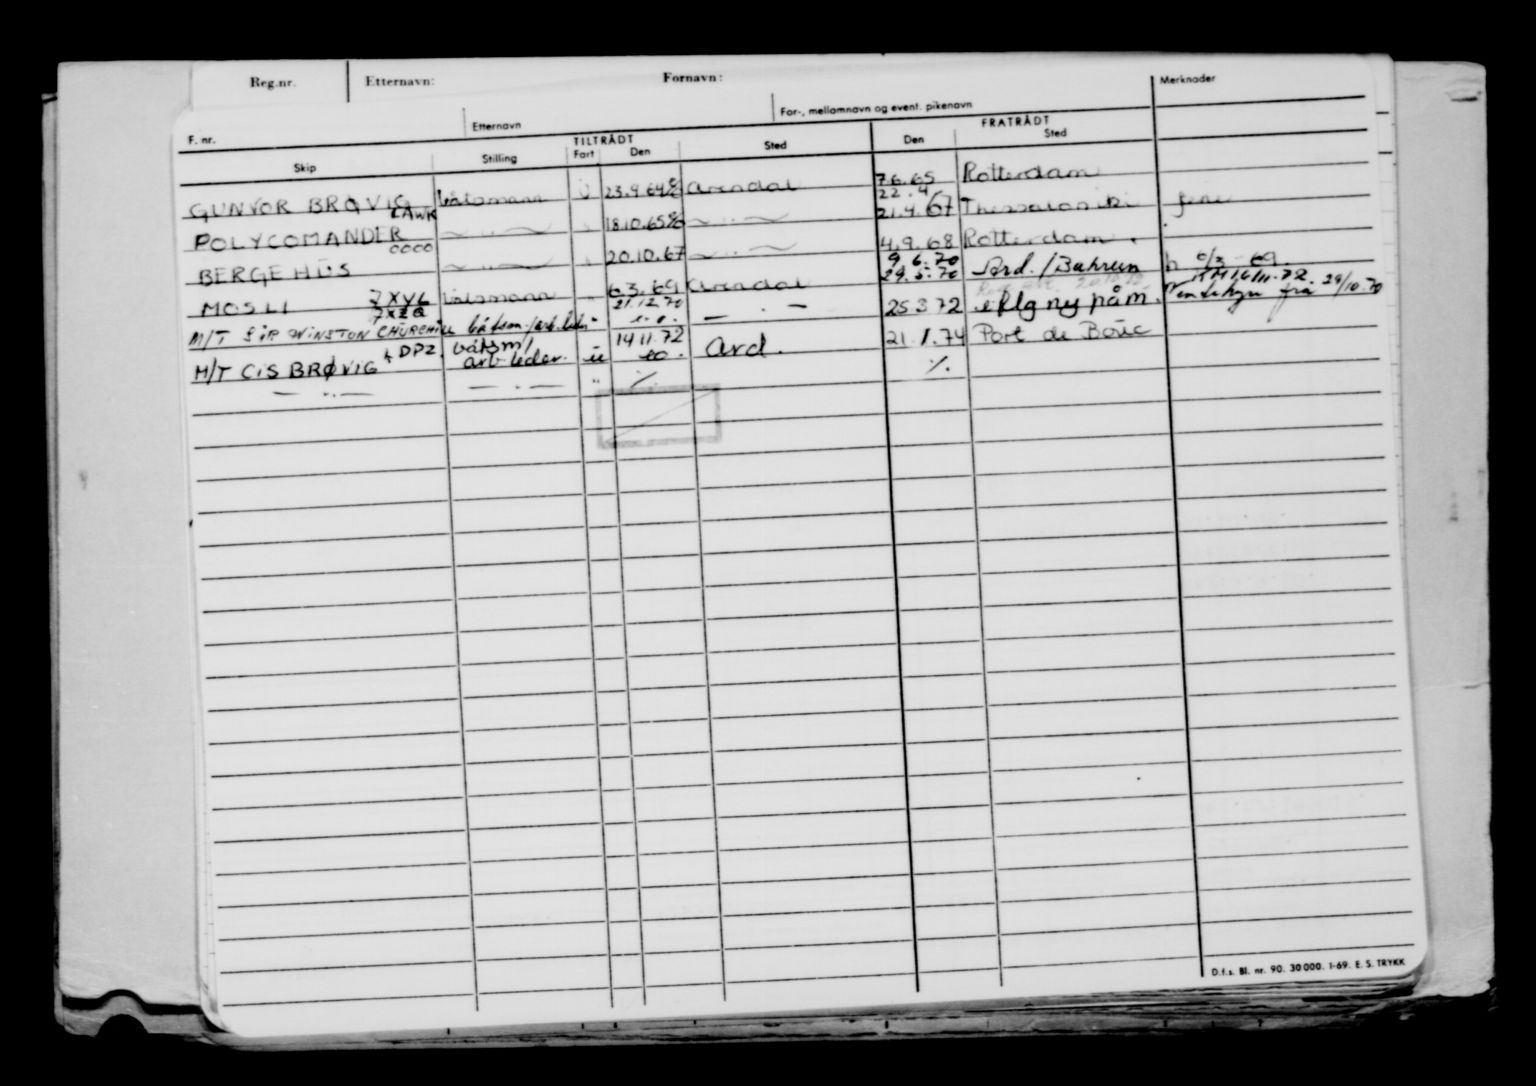 Reg.nr. Etternavn: Fornavn:
Merknader
F. nr. Etternavn For-, mellomnavn og event. pikenavn
TILTRÅDT FRATRÅDT
Skip Stilling Fart Den Sted Den Sted
GUNVOR BRØVIG båtsmann u 23.9.64 Arendal 7.6.65 Rotterdam
LAWK 22.4
POLYCOMANDER — " — " 18.10.65 — " — 21.4.67 Thessaloniki ferie
BERGEHUS — " — " 20.10.67 — " — 4.9.68 Rotterdam
9.6.70
MOSLI båtsmann " 6.3.69 Arendal 29.5.70 /Bahrein
M/T SIR WINSTON CHURCHILL båtsm./arb.leder " 21.12.70 — " — 25.3.72 iflg ny påm. fra 29/10.70
M/T CIS BRØVIG båtsm/ arb-leder. u 14.11.72 Ard. 21.1.74 Port de Bouc
— " — — " — " ./. ./.
D.f.s. Bl. nr. 90. 30 000. 1-69. E. S. TRYKK